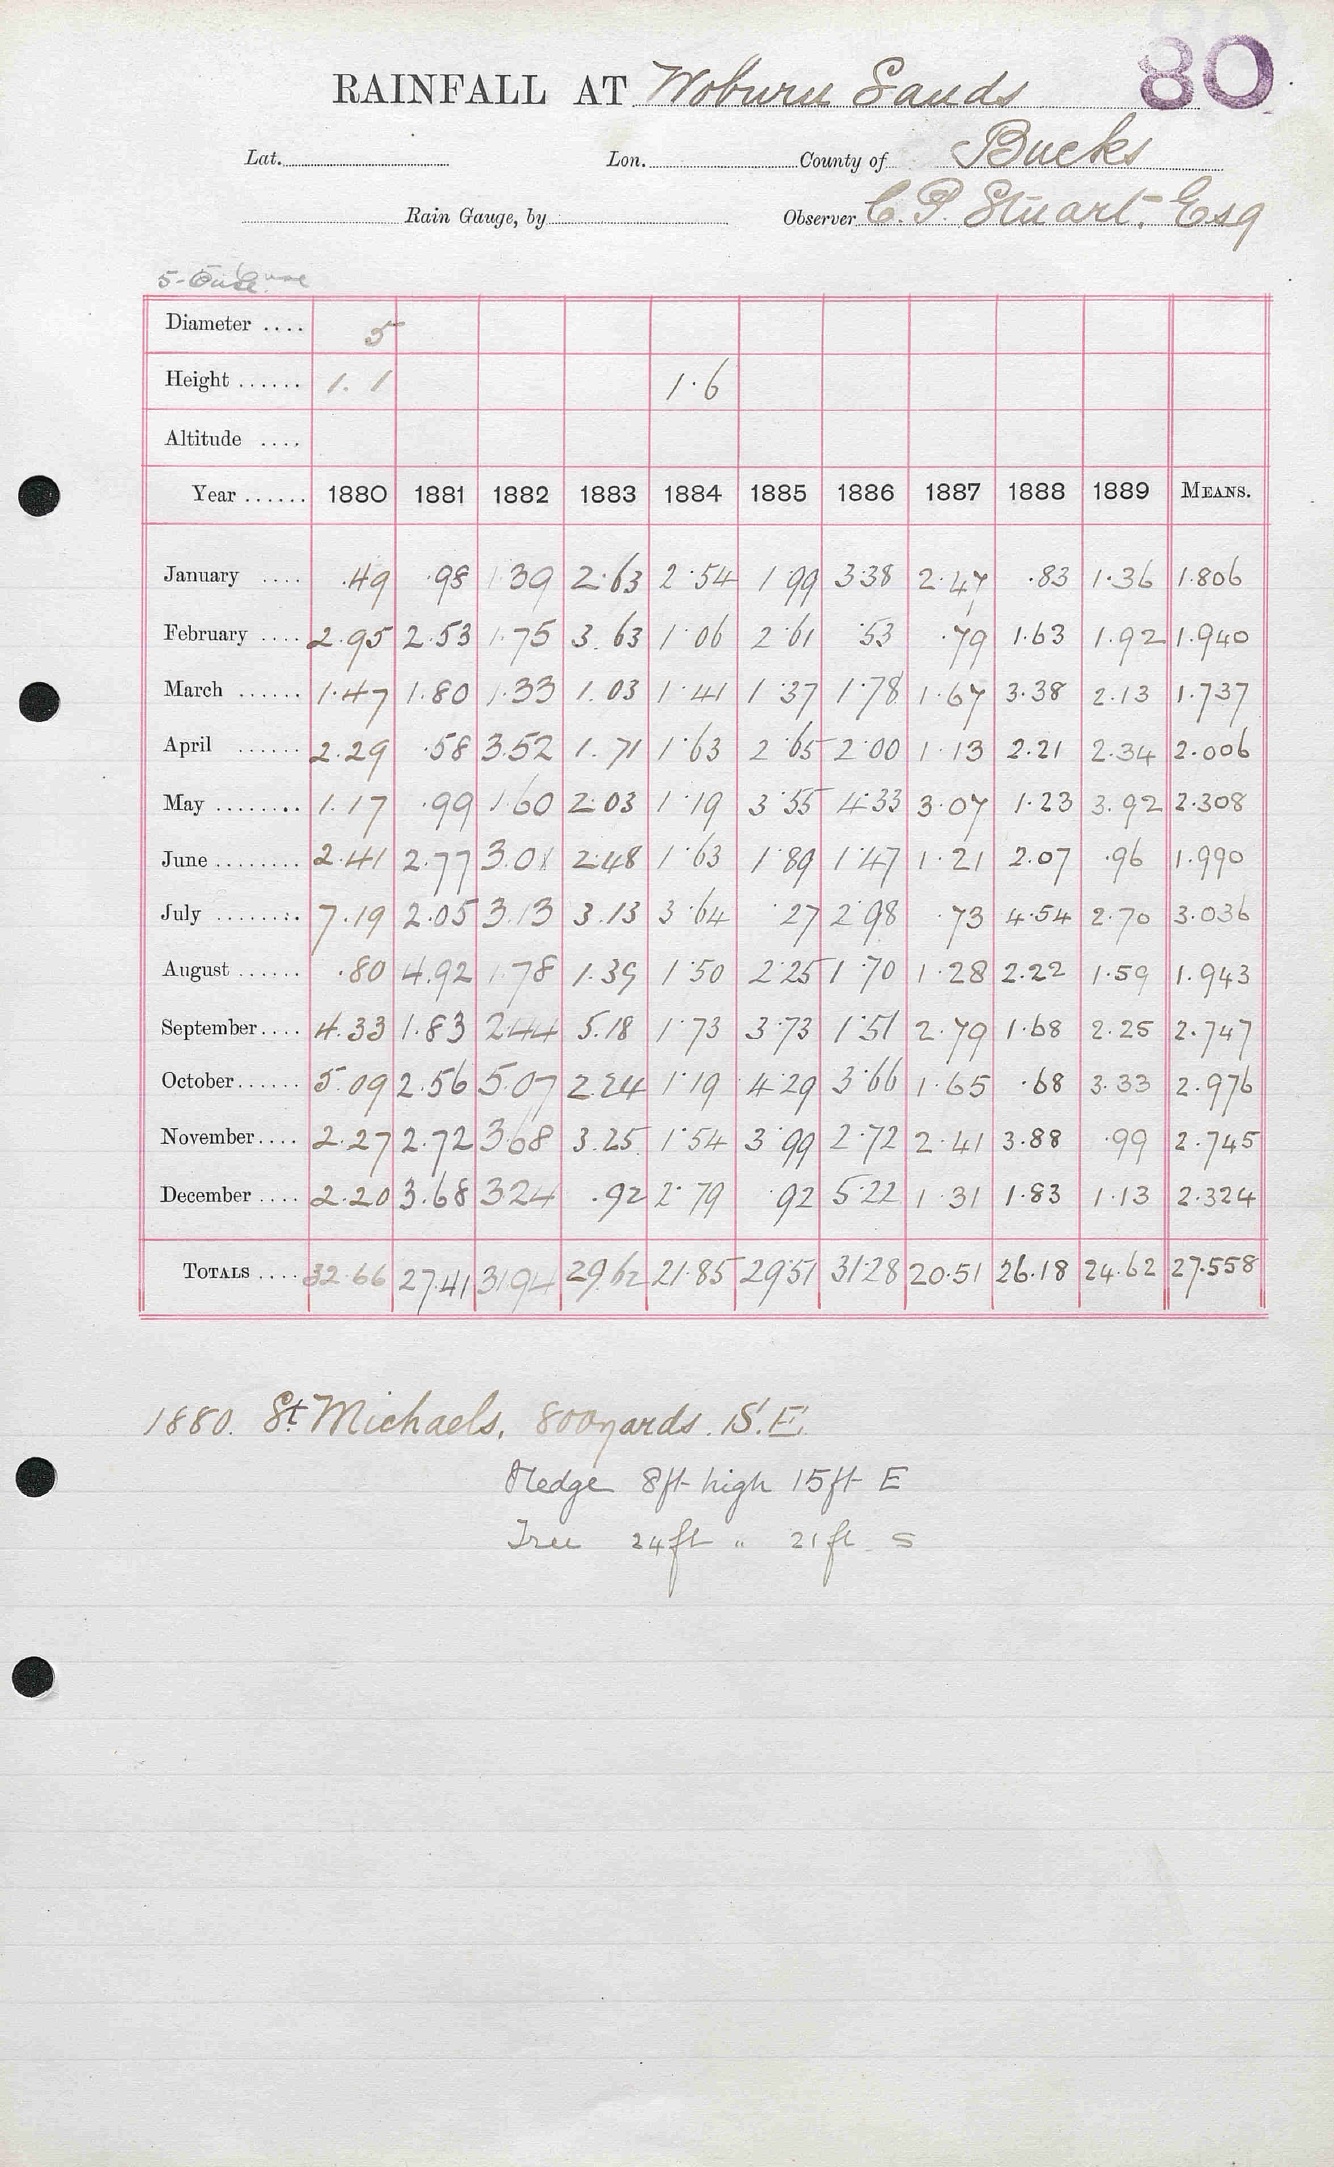 80
RAINFALL AT Woburn Sands
Lat. Lon. County of Bucks
Rain Gauge, by Observer C. P. Stuart, Esq
5-
Diameter .... 5
Height ...... 1.1 1.6
Altitude ....
Year ...... 1880 1881 1882 1883 1884 1885 1886 1887 1888 1889 MEANS.
January .... .49 .98 1.39 2.63 2.54 1.99 3.38 2.47 .83 1.36 1.806
February .... 2.95 2.53 1.75 3.63 1.06 2.61 .53 .79 1.63 1.92 1.940
March ...... 1.47 1.80 1.33 1.03 1.41 1.37 1.78 1.67 3.38 2.13 1.737
April ...... 2.29 .58 3.52 1.71 1.63 2.65 2.00 1.13 2.21 2.34 2.006
May ........ 1.17 .99 1.60 2.03 1.19 3.55 4.33 3.07 1.23 3.92 2.308
June ........ 2.41 2.77 3.01 2.48 1.63 1.89 1.47 1.21 2.07 .96 1.990
July ........ 7.19 2.05 3.13 3.13 3.64 .27 2.98 .73 4.54 2.70 3.036
August ...... .80 4.92 1.78 1.39 1.50 2.25 1.70 1.28 2.22 1.59 1.943
September .... 4.33 1.83 2.44 5.18 1.73 3.73 1.51 2.79 1.68 2.25 2.747
October ...... 5.09 2.56 5.07 2.24 1.19 4.29 3.66 1.65 .68 3.33 2.976
November .... 2.27 2.72 3.68 3.25 1.54 3.99 2.72 2.41 3.88 .99 2.745
December .... 2.20 3.68 3.24 .92 2.79 .92 5.22 1.31 1.83 1.13 2.324
TOTALS .... 32.66 27.41 31.94 29.62 21.85 29.51 31.28 20.51 26.18 24.62 27.558
1880. St. Michaels, 800 yards S.E.
Hedge 8ft high 15ft E
Tree 24ft " 21ft S